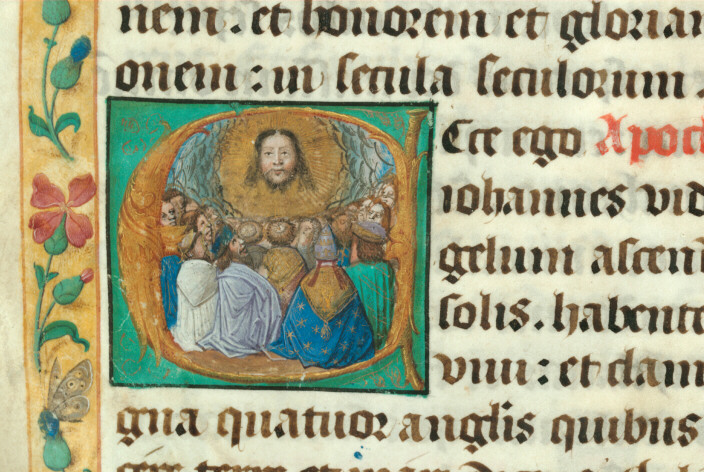 nem: et honorem et glorian
onem: in secula seculorum.
Ecce ego Apoc
iohannes vid
gelum ascen
solis. habente
viui: et clam
gna quatuor anglis quibus